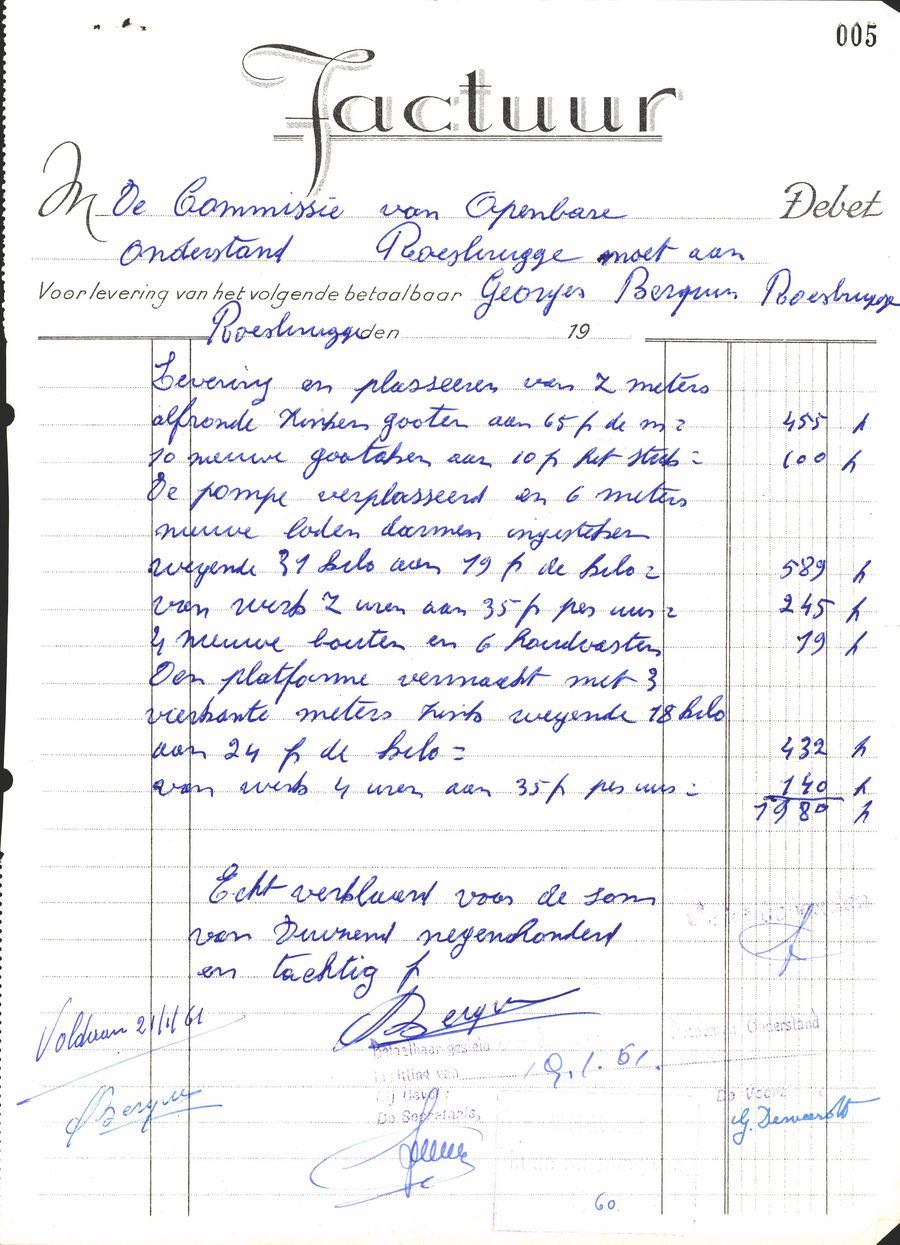 005
Factuur
M De Commissie van Openbare Debet
Onderstand Roesbrugge moet aan
Voor levering van het volgende betaalbaar Georges Bergun Roesbrugge
Roesbrugge den 19
Levering en plasseeren van 7 meters
alfronde zinken gooten aan 65 f de m = 455 f
10 nieuwe gootaken aan 10 f het stuk = 100 f
De pompe verplasseerd en 6 meters
nieuwe loden darmen ingesteken
wegende 31 kilo aan 19 f de kilo = 589 f
van werk 7 uren aan 35 f per uur = 245 f
4 nieuwe bouten en 6 houdvasten 19 f
Den platforme vermaakt met 3
vierkante meters zink wegende 18 kilo
aan 24 f de kilo = 432 f
van werk 4 uren aan 35 f per uur = 140 f
1980 f
Echt verklaard voor de som
van Duizend negenhonderd
en tachtig f
Bergun
Voldaan 21/1/61
Betaalbaar gesteld Onderstand
Zitting van 19.1.61.
Bij Bevel:
De Secretaris,
De Voorz
Bergun
60